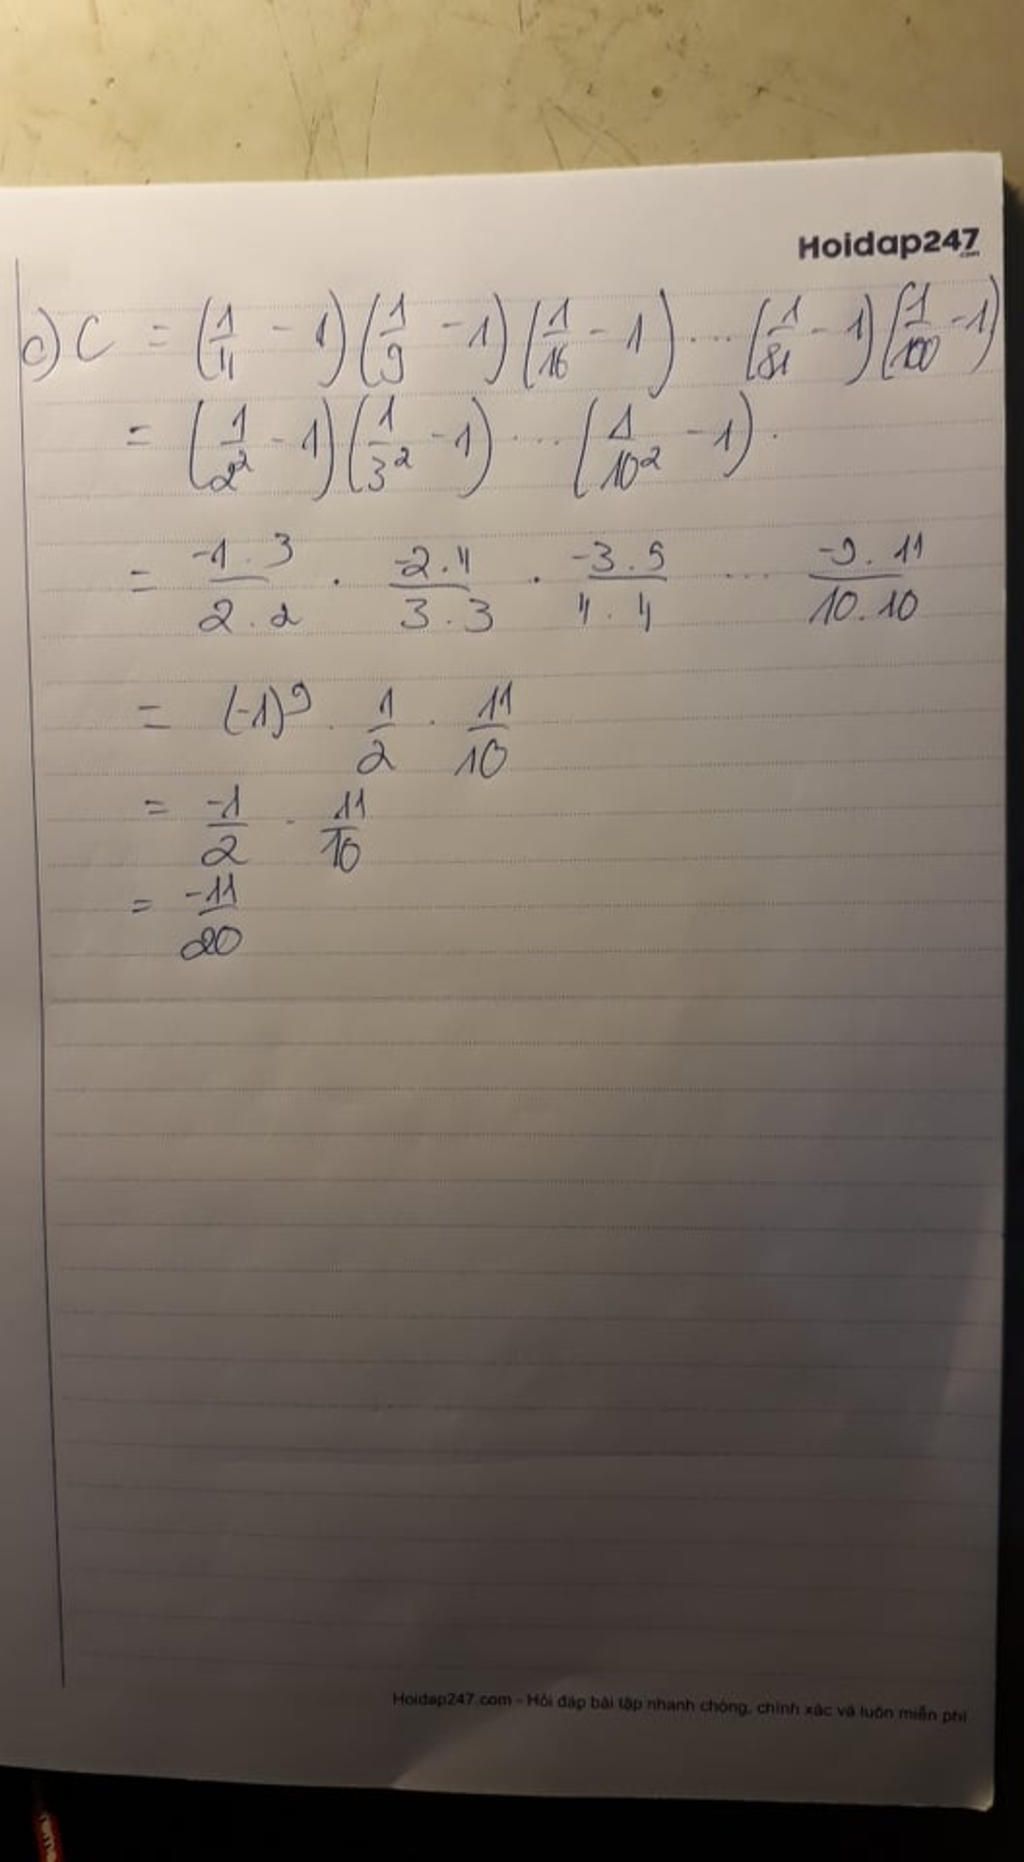 Hoidap247
.com
c) C = (1/4 - 1)(1/9 - 1)(1/16 - 1) .... (1/81 - 1)(1/100 - 1)
= (1/2² - 1)(1/3² - 1) .... (1/10² - 1).
= -1.3/2.2 . -2.4/3.3 . -3.5/4.4 ... -9.11/10.10
= (-1)⁹ . 1/2 . 11/10
= -1/2 . 11/10
= -11/20
Hoidap247.com - Hỏi đáp bài tập nhanh chóng, chính xác và luôn miễn phí